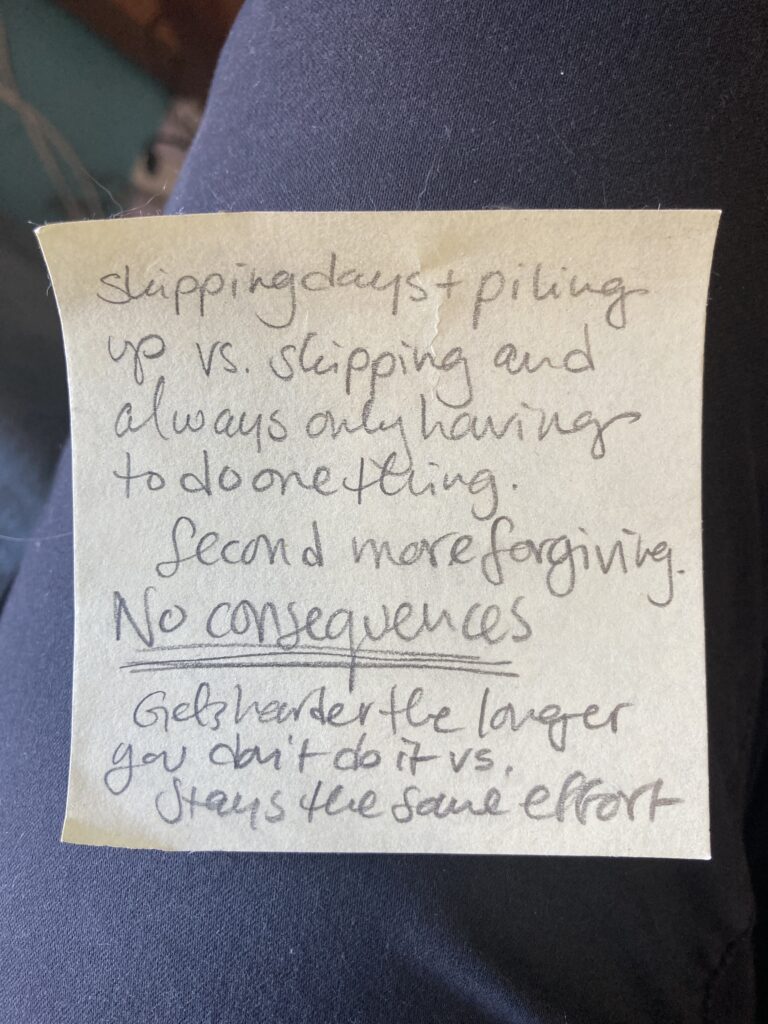 skipping days + piling
up vs. skipping and
always only having
to do one thing.
Second more forgiving.
No consequences
Gets harder the longer
you don't do it vs.
Stays the same effort